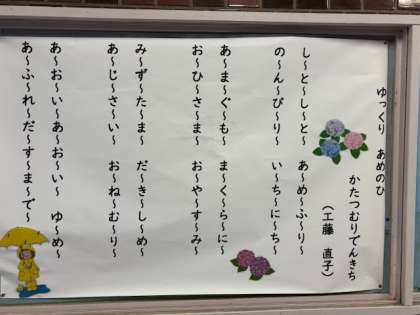 ゆっくり　あめのひ
かたつむりでんきち
（工藤　直子）
し～と～し～と～　あ～め～ふ～り～
の～ん～び～り～　い～ち～に～ち～
あ～ま～ぐ～も～　ま～く～ら～に～
お～ひ～さ～ま～　お～や～す～み～
み～ず～た～ま～　だ～き～し～め～
あ～じ～さ～い～　お～ね～む～り～
あ～お～い～あ～お～い～　ゆ～め～
あ～ふ～れ～だ～す～ま～で～